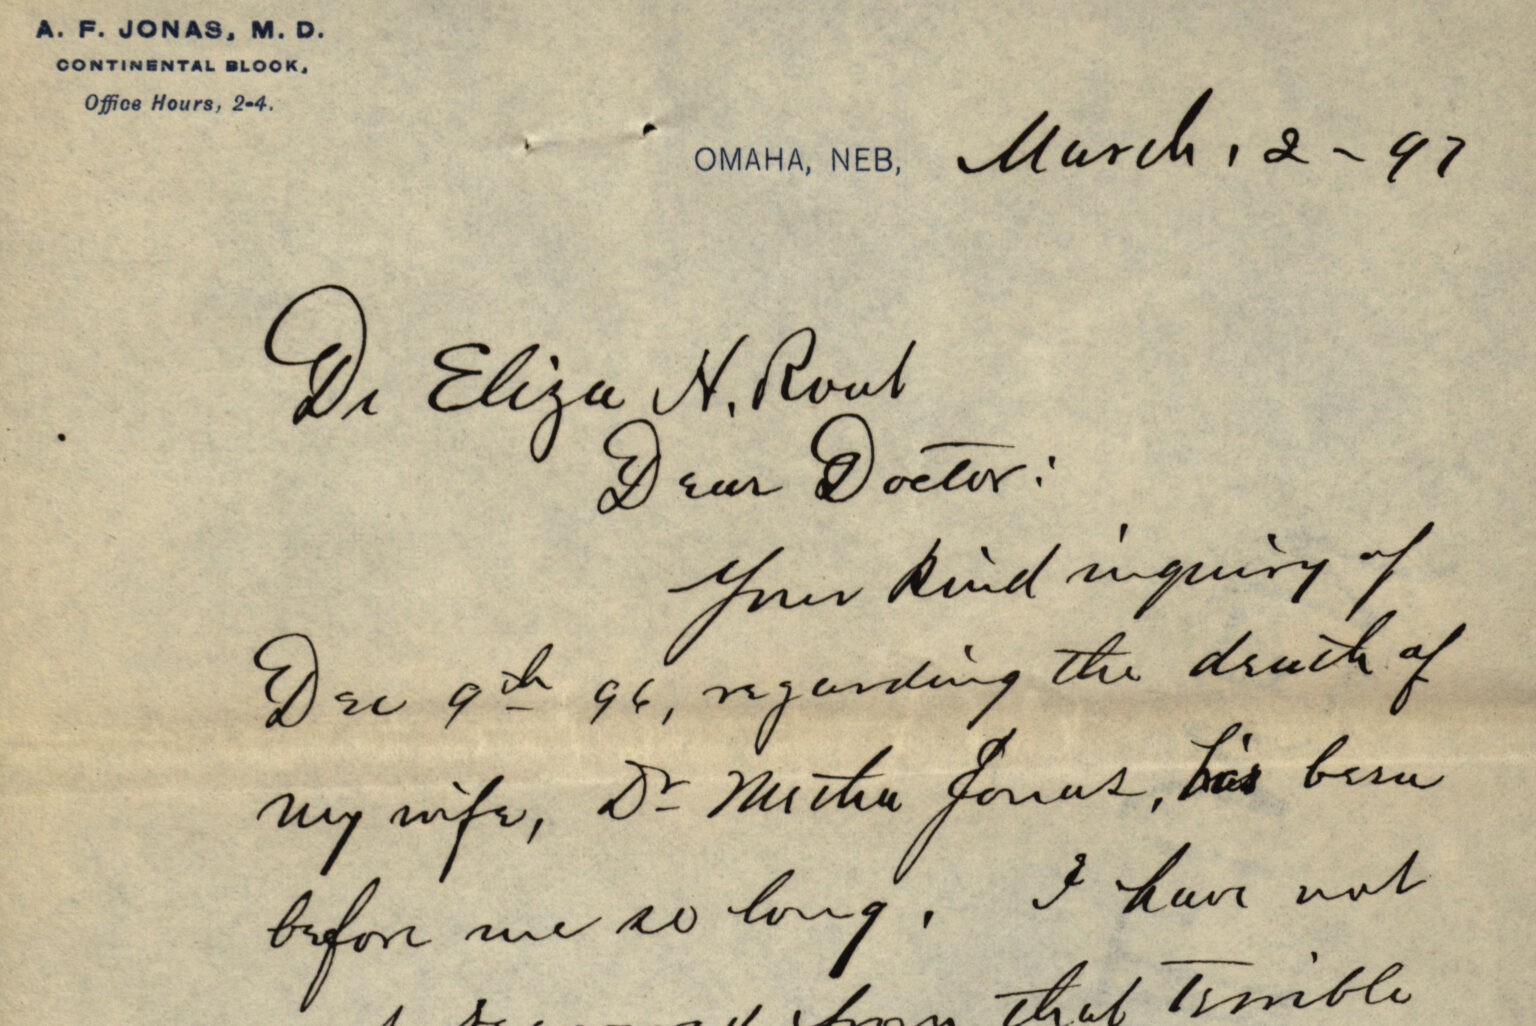 A. F. JONAS, M. D.
CONTINENTAL BLOCK,
Office Hours, 2-4.
OMAHA, NEB, March, 2 - 97
Dr Eliza H. Root
Dear Doctor:
Your kind inquiry of
Dec 9th 96, regarding the death of
my wife, Dr Jonas, has been
before me so long. I have not
from that terrible